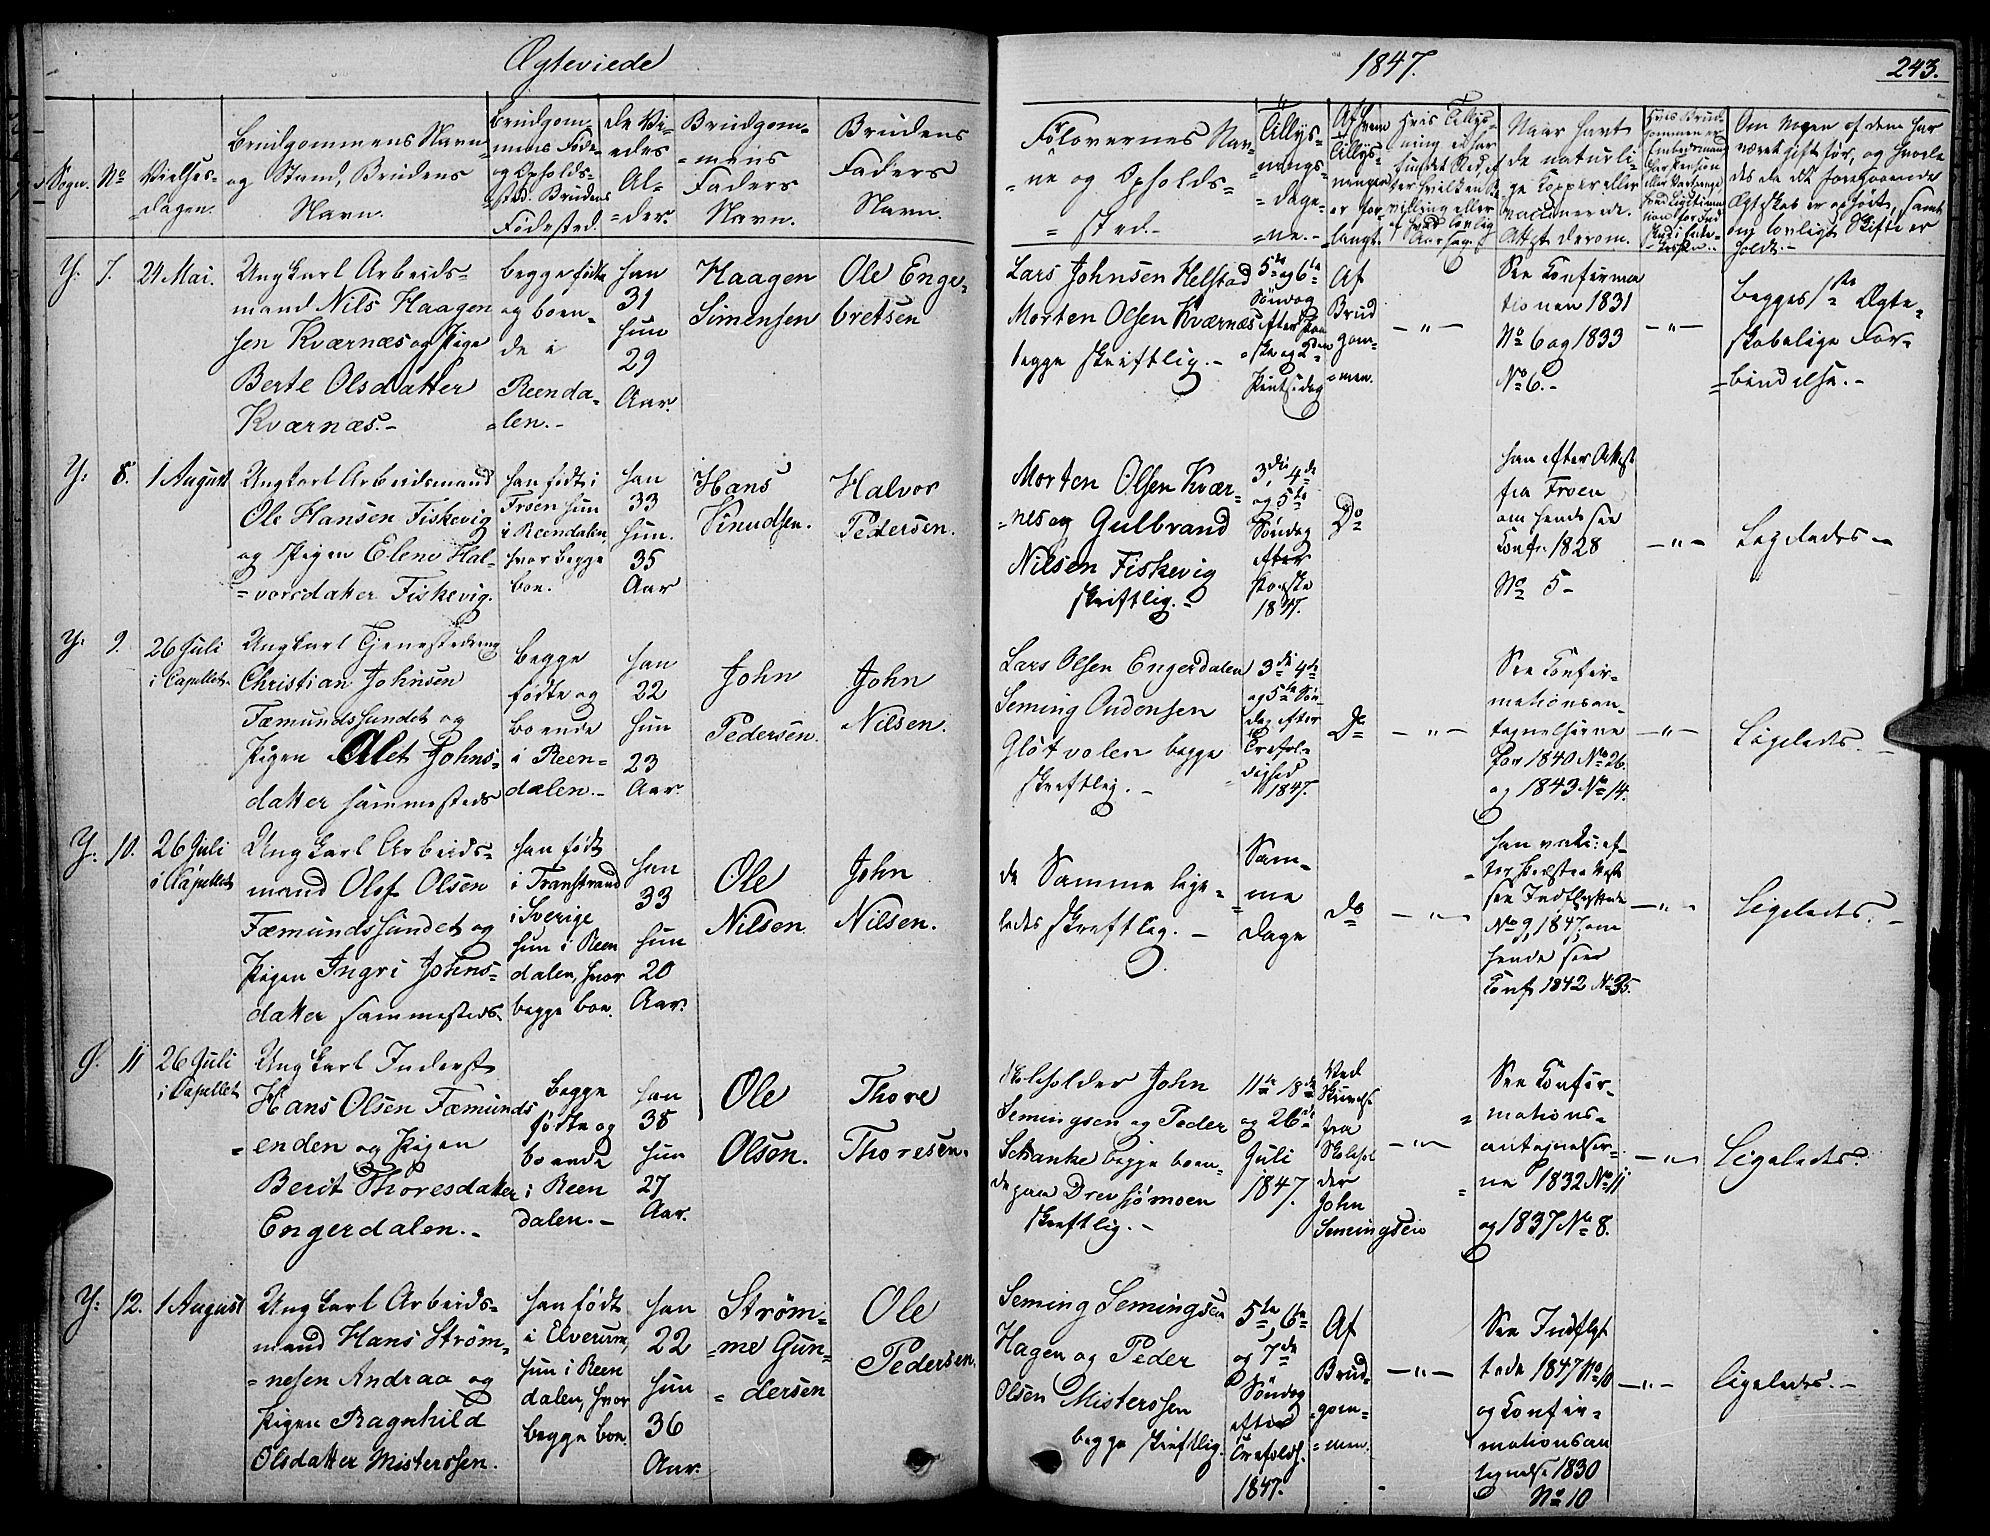 Ægteviede
1847.
243.
Sogn.
No
Vielses-
=dagen.
Brudgommens Navn
og Stand, Brudens
Navn.
Brudgom-
mens Føde-
og Opholds-
sted. Brudens
Fødested.
de Vi-
edes
Al-
=der.
Brudgom-
=mens
Faders
Navn.
Brudens
Faders
Navn.
Forlovernes Nav-
=ne og Opholds-
=sted.-
Tillys-
=nings-
=dage-
=ne.-
Af hvem
Tillys-
ningen
er for-
langt.
Naar havt
de naturli-
ge Kopper eller
vaccinerede.
Attest derom.
Om Nogen af dem har
været gift før, og hvorle
des da det foregaaende
Ægteskab er ophørt, samt
om lovligt Skifte er
holdt.-
Y. 7. 24 Mai.
Ungkarl Arbeids-
mand Nils Haagen
sen Kværnæs og Pige
Berte Olsdatter
Kværnæs.-
begge fødte
og boen-
de i
Reenda-
=len.-
han
31
hun
29
Aar.
Haagen
Simensen
Ole Enge-
bretsen
Lars Johnsen Helstad
Morten Olsen Kværnæs
begge skriftlig.-
5te og 6te
Søndag
efter Paa
ske og 2den
Pintsedag
Af
Brud
gom-
=men.
-"-
See Confirma
tionen 1831
No 6 og 1833
No 6.-
-"-
begges 1ste Ægte-
skabelige For-
=bindelse.-
Y: 8. 1 August
Ungkarl Arbeidsmand
Ole Hansen Fiskevig
og Pigen Elene Hal-
=vorsdatter Fiskevig.
han født i
Froen hun
i Reendalen,
hvor begge
boe.
han
33
hun.
35
Aar
Hans
Knudsen.
Halvor
Pedersen.
Morten Olsen Kvær-
=nes og Gulbrand
Nilsen Fiskevig
skriftlig.-
3die 4de
og 5te
Søndag
efter
Paaske
1847.
Do
han efter Attest
fra Froen
om hende see
Conf. 1828
No 5-
-"-
Ligeledes-
Y: 9. 26 Juli
i Capellet.
Ungkarl Tjenestedreng
Christian Johnsen
Fæmundssundet og
Pigen Alet Johns-
datter sammesteds
begge
fødte og
boende
i Reen-
dalen.-
han
22
hun
23
Aar.
John
Pedersen.
John
Nilsen.
Lars Olsen Engerdalen
Seming Andensen
Gløtvolen begge
skriftlig.-
3die 4de
og 5te Søn-
dag efter
Trefol-
dighed
1847.
Do
-"-
See Confir-
mationsan-
tegnelserne
for 1840 No 26
og 1843 No 14.
-"-
Ligeleds.-
Y: 10. 26 Juli
i Capellet
Ungkarl Arbeids-
mand Olof Olsen
Fæmundssundet og
Pigen Ingri Johns-
datter sammesteds.
han født
i Transtrand
i Sverige
hun i Reen
dalen, hvor
begge boe.
han
33
hun
20
Aar.
Ole
Nilsen
John
Nilsen.
de Samme lige-
leds skriftlig.-
Sam-
=me
Dage
Do
-"-
han vacci: ef-
ter Præstens Attest
see Indflyttede
No 9, 1847, om
hende see
Conf 1842 No 35.
-"-
Ligeleds.-
Y. 11 26 Juli
i Capellet
Ungkarl Inderst
Hans Olsen Fæmunds
=enden og Pigen
Berit Thoresdatter
Engerdalen.-
begge
fødte og
boende
i Reen
dalen.-
han
35
hun
27
Aar.
Ole
Olsen.
Thore
Thoresen.
Skoleholder John
Semingsen og Peder
Schanke begge boen-
de paa Drevsjømoen
skriftlig.-
11te 18de
og 26de
Juli
1847.
Ved
Skrivelse
fra
Skolehol
der
John
Semingsen
-"-
See Confir-
mations-
antegnelser-
ne 1832 No 11
og 1837 No 8.
-"-
Ligeleds.
Y: 12. 1 August
Ungkarl Arbeids-
mand Hans Strøm-
=nesen Andraa og
Pigen Ragnhild
Olsdatter Misterssen.
han født
i Elverum,
hun i Reen
dalen, hvor
begge boe.
han
22
hun
36
Aar.
Strøm-
=me Gun-
=dersen
Ole
Pedersen.
Seming Semingsen
Hagen og Peder
Olsen Misterssen
begge skriftlig.
5te 6te
og 7de
Søndag
efter
Trefoldh.
1847.
Af
Brud-
=gom-
=men.
-"-
See Indflyt
tede 1847 No 10
og Confir-
mationsan
tegnelse 1830
No 10
-"-
Ligeledes.-